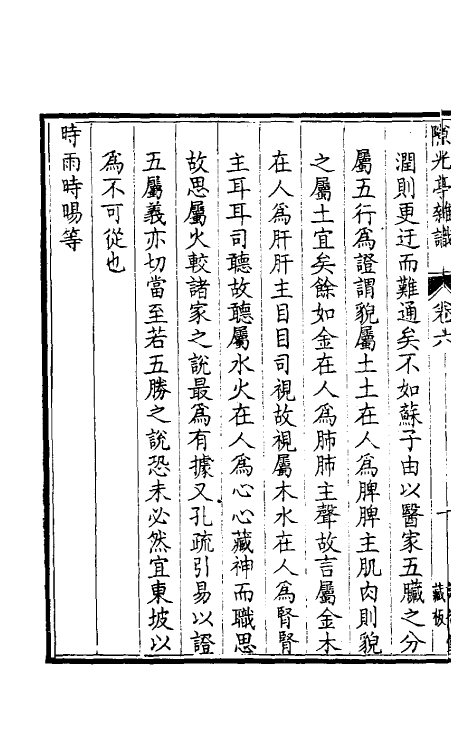 隙光亭雜識
卷六
十
藏板
潤則更迂而難通矣不如蘇子由以醫家五臟之分
屬五行爲證謂貌屬土土在人爲脾脾主肌肉則貌
之屬土宜矣餘如金在人爲肺肺主聲故言屬金木
在人爲肝肝主目目司視故視屬木水在人爲腎腎
主耳耳司聽故聽屬水火在人爲心心藏神而職思
故思屬火較諸家之說最爲有據又孔疏引易以證
五屬義亦切當至若五勝之說恐未必然宜東坡以
爲不可從也
時雨時暘等